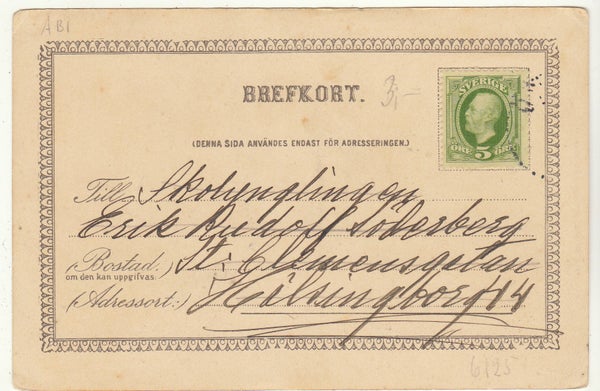 AB1
BREFKORT.
3,-
SVERIGE
ÖRE 5 ÖRE
(DENNA SIDA ANVÄNDES ENDAST FÖR ADRESSERINGEN.)
Till Skolynglingen
Erik Rudolf Söderberg
(Bostad:) St. Clemensgatan
om den kan uppgifvas.
(Adressort:) Hälsingborg 14
6125